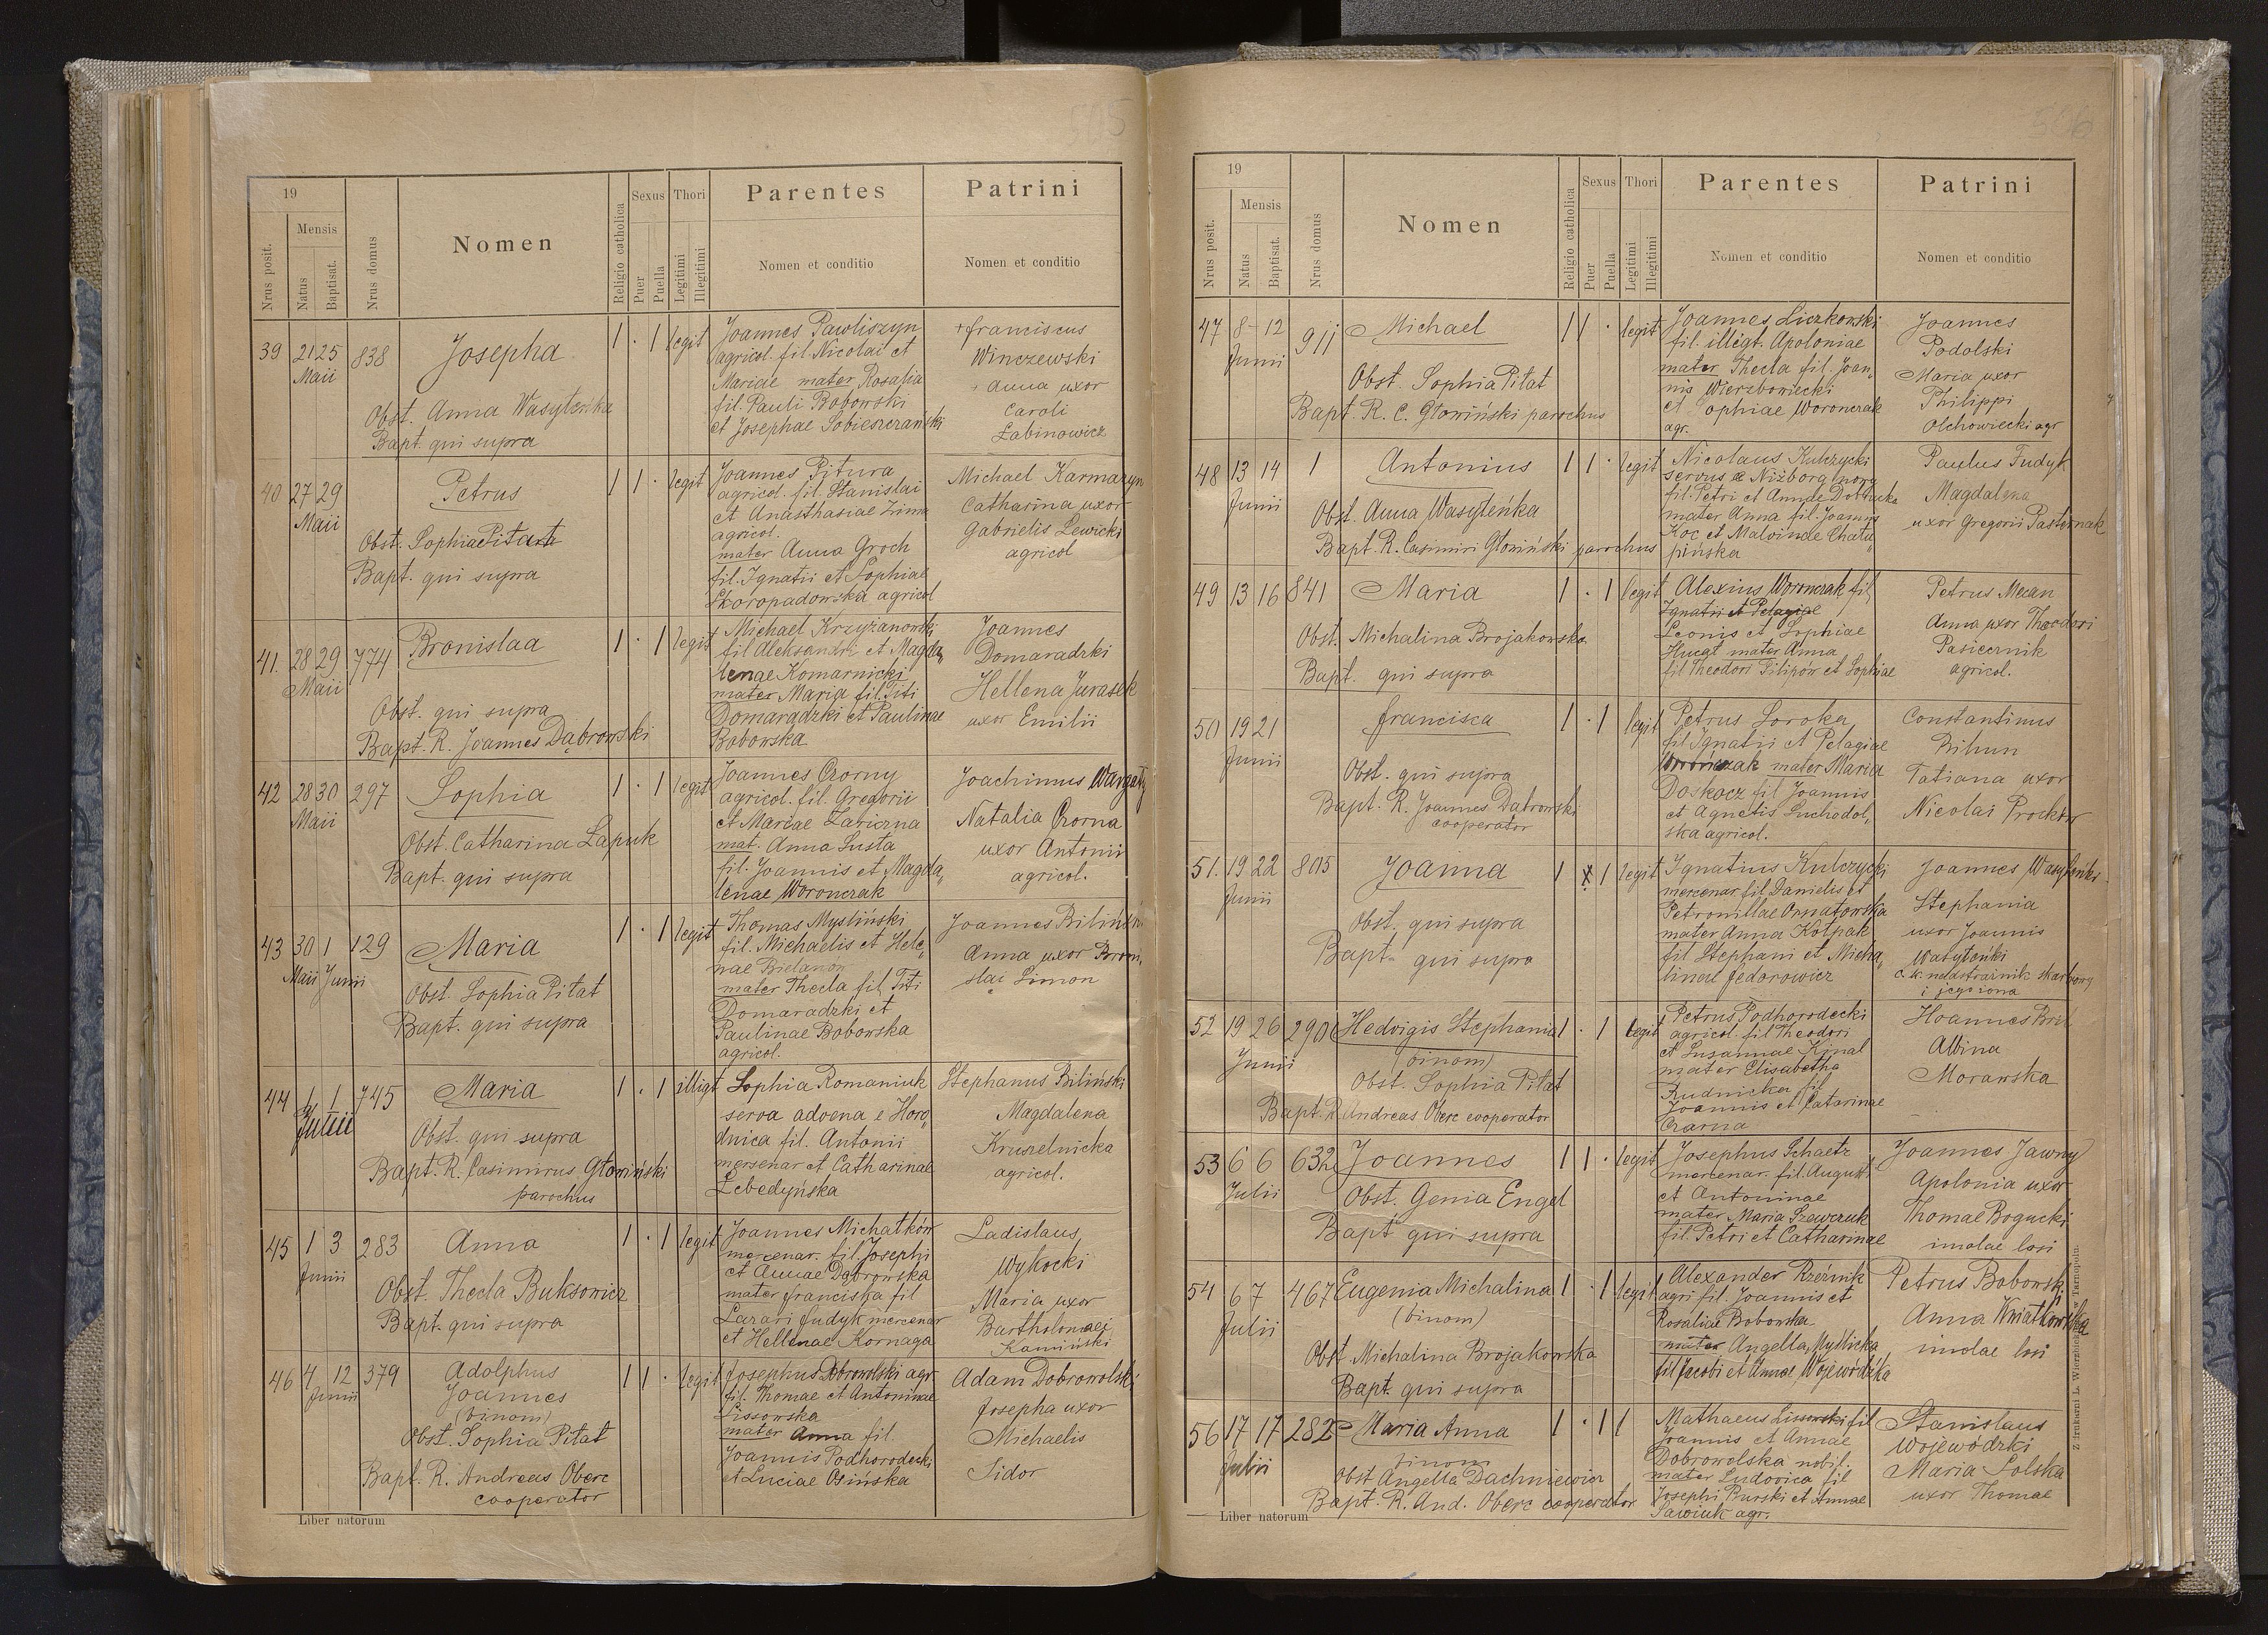 505
19
Nrus posit.
Mensis
Natus
Baptisat.
Nrus domus
Nomen
Religio catholica
Sexus
Puer
Puella
Thori
Legitimi
Illegitimi
Parentes
Nomen et conditio
Patrini
Nomen et conditio
39 21 25 838 Josepha 1 · 1 legit
Maii
Obst. Anna Wasyleńka
Bapt. qui supra
Joannes Pawliszyn
agricol. fil. Nicolai et
Mariae mater Rosalia
fil. Pauli Bobowski
et Josephae Sobieszczański
+ franciscus
Winczewski
Anna uxor
Caroli
Łabinowicz
40 27 29 Petrus 1 1 · legit
Maii
Obst. Sophia Pitat
Bapt. qui supra
Joannes Pitura
agricol. fil. Stanislai
et Anasthasiae Zima
agricol.
mater Anna Groch
fil. Ignatii et Sophiae
Skoropadowska agricol
Michael Karmazyn
Catharina uxor
Gabrielis Lewicki
agricol
41. 28 29 774 Bronislaa 1 · 1 legit
Maii
Obst. qui supra
Bapt. R. Joannes Dąbrowski
Michael Krzyżanowski
fil Aleksandri et Magda„
lenae Komarnicki
mater Maria fil. Titi
Domaradzki et Paulinae
Bobowska
Joannes
Domaradzki
Hellena Jurasek
uxor Emilii
42 28 30 297 Sophia 1 · 1 legit
Maii
Obst. Catharina Łapuk
Bapt. qui supra
Joannes Czorny
agricol. fil. Gregorii
et Mariae Łariczna
mat. Anna Susta
fil. Joannis et Magda„
lenae Woronczak
Joachimus
Natalia Czorna
uxor Antonii
agricol.
43 30 1 129 Maria 1 · 1 legit
Maii Junii
Obst. Sophia Pitat
Bapt. qui supra
Thomas Myśliński
fil. Michaelis et Hele„
nae Bielanow
mater Thecla fil. Titi
Domaradzki et
Paulinae Bobowska
agricol.
Joannes Biliński
Anna uxor Broni„
slai Simon
44 1 1 745 Maria 1 · 1 illigt
Junii
Obst. qui supra
Bapt. R. Casimirus Głowiński
parochus
Sophia Romaniuk
serva advena e Horo„
dnica fil. Antonii
mersenar et Catharinae
Lebedyńska
Stephanus Biliński
Magdalena
Kruszelnicka
agricol.
45 1 3 283 Anna 1 · 1 legit
Junii
Obst. Thecla Buksowicz
Bapt. qui supra
Joannes Michałków
mercenar. fil. Josephi
et Annae Dąbrowska
mater franciska fil
Lazari fudyk mercenar
et Hellenae Kornaga
Ladislaus
Wykocki
Maria uxor
Bartholomaei
Kamiński
46 4 12 379 Adolphus 1 1 · legit
Junii
Joannes
(binom)
Obst. Sophia Pitat
Bapt. R. Andreas Oberc
cooperator
Josephus Dobrowolski agr
fil. Thomae et Antoninae
Lissowska
mater Anna fil.
Joannis Podhorodecki
et Luciae Osińska
Adam Dobrowolski
Josepha uxor
Michaelis
Sidor
Liber natorum
506
19
Nrus posit.
Mensis
Natus
Baptisat.
Nrus domus
Nomen
Religio catholica
Sexus
Puer
Puella
Thori
Legitimi
Illegitimi
Parentes
Nomen et conditio
Patrini
Nomen et conditio
47 8-12 911 Michael 1 1 · legit
Junii
Obst. Sophia Pitat
Bapt. R. C. Głowiński parochus
Joannes Liczkowski
fil. illigt. Apoloniae
mater Thecla fil. Joan„
nis Wierzbowiecki
et ophiae Woronczak
agr.
Joannes
Podolski
Maria uxor
Philippi
Olchowiecki agr
48 13 14 1 Antonius 1 1 · legit
Junii
Obst. Anna Wasyleńka
Bapt. R. Casimiri Głowiński parochus
Nicolaus Kulczycki
servus e Niżborg nowy
fil. Petri et Annae Dobrucka
mater Anna fil. Joannis
Koc et Malvinae Chału„
pińska
Paulus Fudyk
Magdalena
uxor Gregorii Pasternak
49 13 16 841 Maria 1 · 1 legit
Obst. Michalina Brojakowska
Bapt. qui supra
Alexius Woronczak fil,
Ignatii et Pelagiae
Leonis et Sophiae
Hucat mater Anna
fil Theodori Filipów et Sophiae
Petrus Mecan
Anna uxor Theodori
Pasiecznik
agricol.
50 19 21 francisca 1 · 1 legit
Junii
Obst. qui supra
Bapt. R. Joannes Dabrowski
cooperator
Petrus Soroka
fil Ignatii et Pelagiae
Woronczak mater Maria
Doskocz fil Joannis
et Agnetis Suchodol„
ska agricol.
Constantinus
Bihun
Tatiana uxor
Nicolai Procktor
51. 19 22 805 Joanna 1 1 legit
Junii
Obst. qui supra
Bapt- qui supra
Ignatius Kulczycki
mercenar fil Danielis et
Petronillae Ornatowska
mater Anna Kołpak
fil Stephani et Micha„
linae fedorowicz
Joannes Wasyleńki
Stephania
uxor Joannis
Watyleńki
c. k. nadstrażnik skarbowy
i jego żona
52 19 26 290 Hedvigis Stephania 1 · 1 legit
Junii
(binom)
Obst. Sophia Pitat
Bapt. R Andreas Oberc cooperator
Petrus Podhorodecki
agricol. fil Theodori
et Susannae Kinal
mater Elisabetha
Rudnicka fil
Joannis et Catarinae
Czarna
Hoannes Bril
Albina
Morawska
53 6 6 632 Joannes 1 1 · legit
Julii
Obst. Genia Engel
Bapt qui supra
Josephus Schaetz
mercenar. fil. Augusti
et Antoninae
mater Maria Szewczuk
fil. Petri et Catharinae
Joannes Jawny
Apolonia uxor
Thomae Bogucki
imolae loci
54 6 7 467 Eugenia Michalina 1 · 1 legit
Julii
(binom)
Obst Michalina Brojakowska
Bapt. qui supra
Alexander Rzeźnik
agri fil Joannis et
Rosaliae Bobowska
mater Angella Myślicka
fil Jacobi et Annae Wojewódzka
Petrus Bobowski
Anna Kwiatkowska
imolae loci
56 17 17 282 Maria Anna 1 · 1 1
Julii
binom
Obst Angella Dachniewicz
Bapt. R. And. Oberc cooperator
Mathaeus Lissowski fil
Joannis et Annae
Dobrowolska nobil.
mater Ludovica fil
Josephi Burski et Annae
Sawiuk agr.
Stanislaus
Wojewódzki
Maria Solska
uxor Thomae
Liber natorum
Z drukarni L. Wierzbickiego w Tarnopolu.